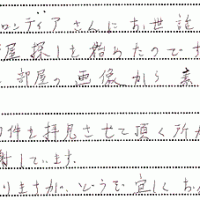 ロンディアさんにお世話
部屋探しを始めたのです
部屋の画像から
物件を拝見させて頂く所
謝しています。
りますが、どうぞ宜しくお